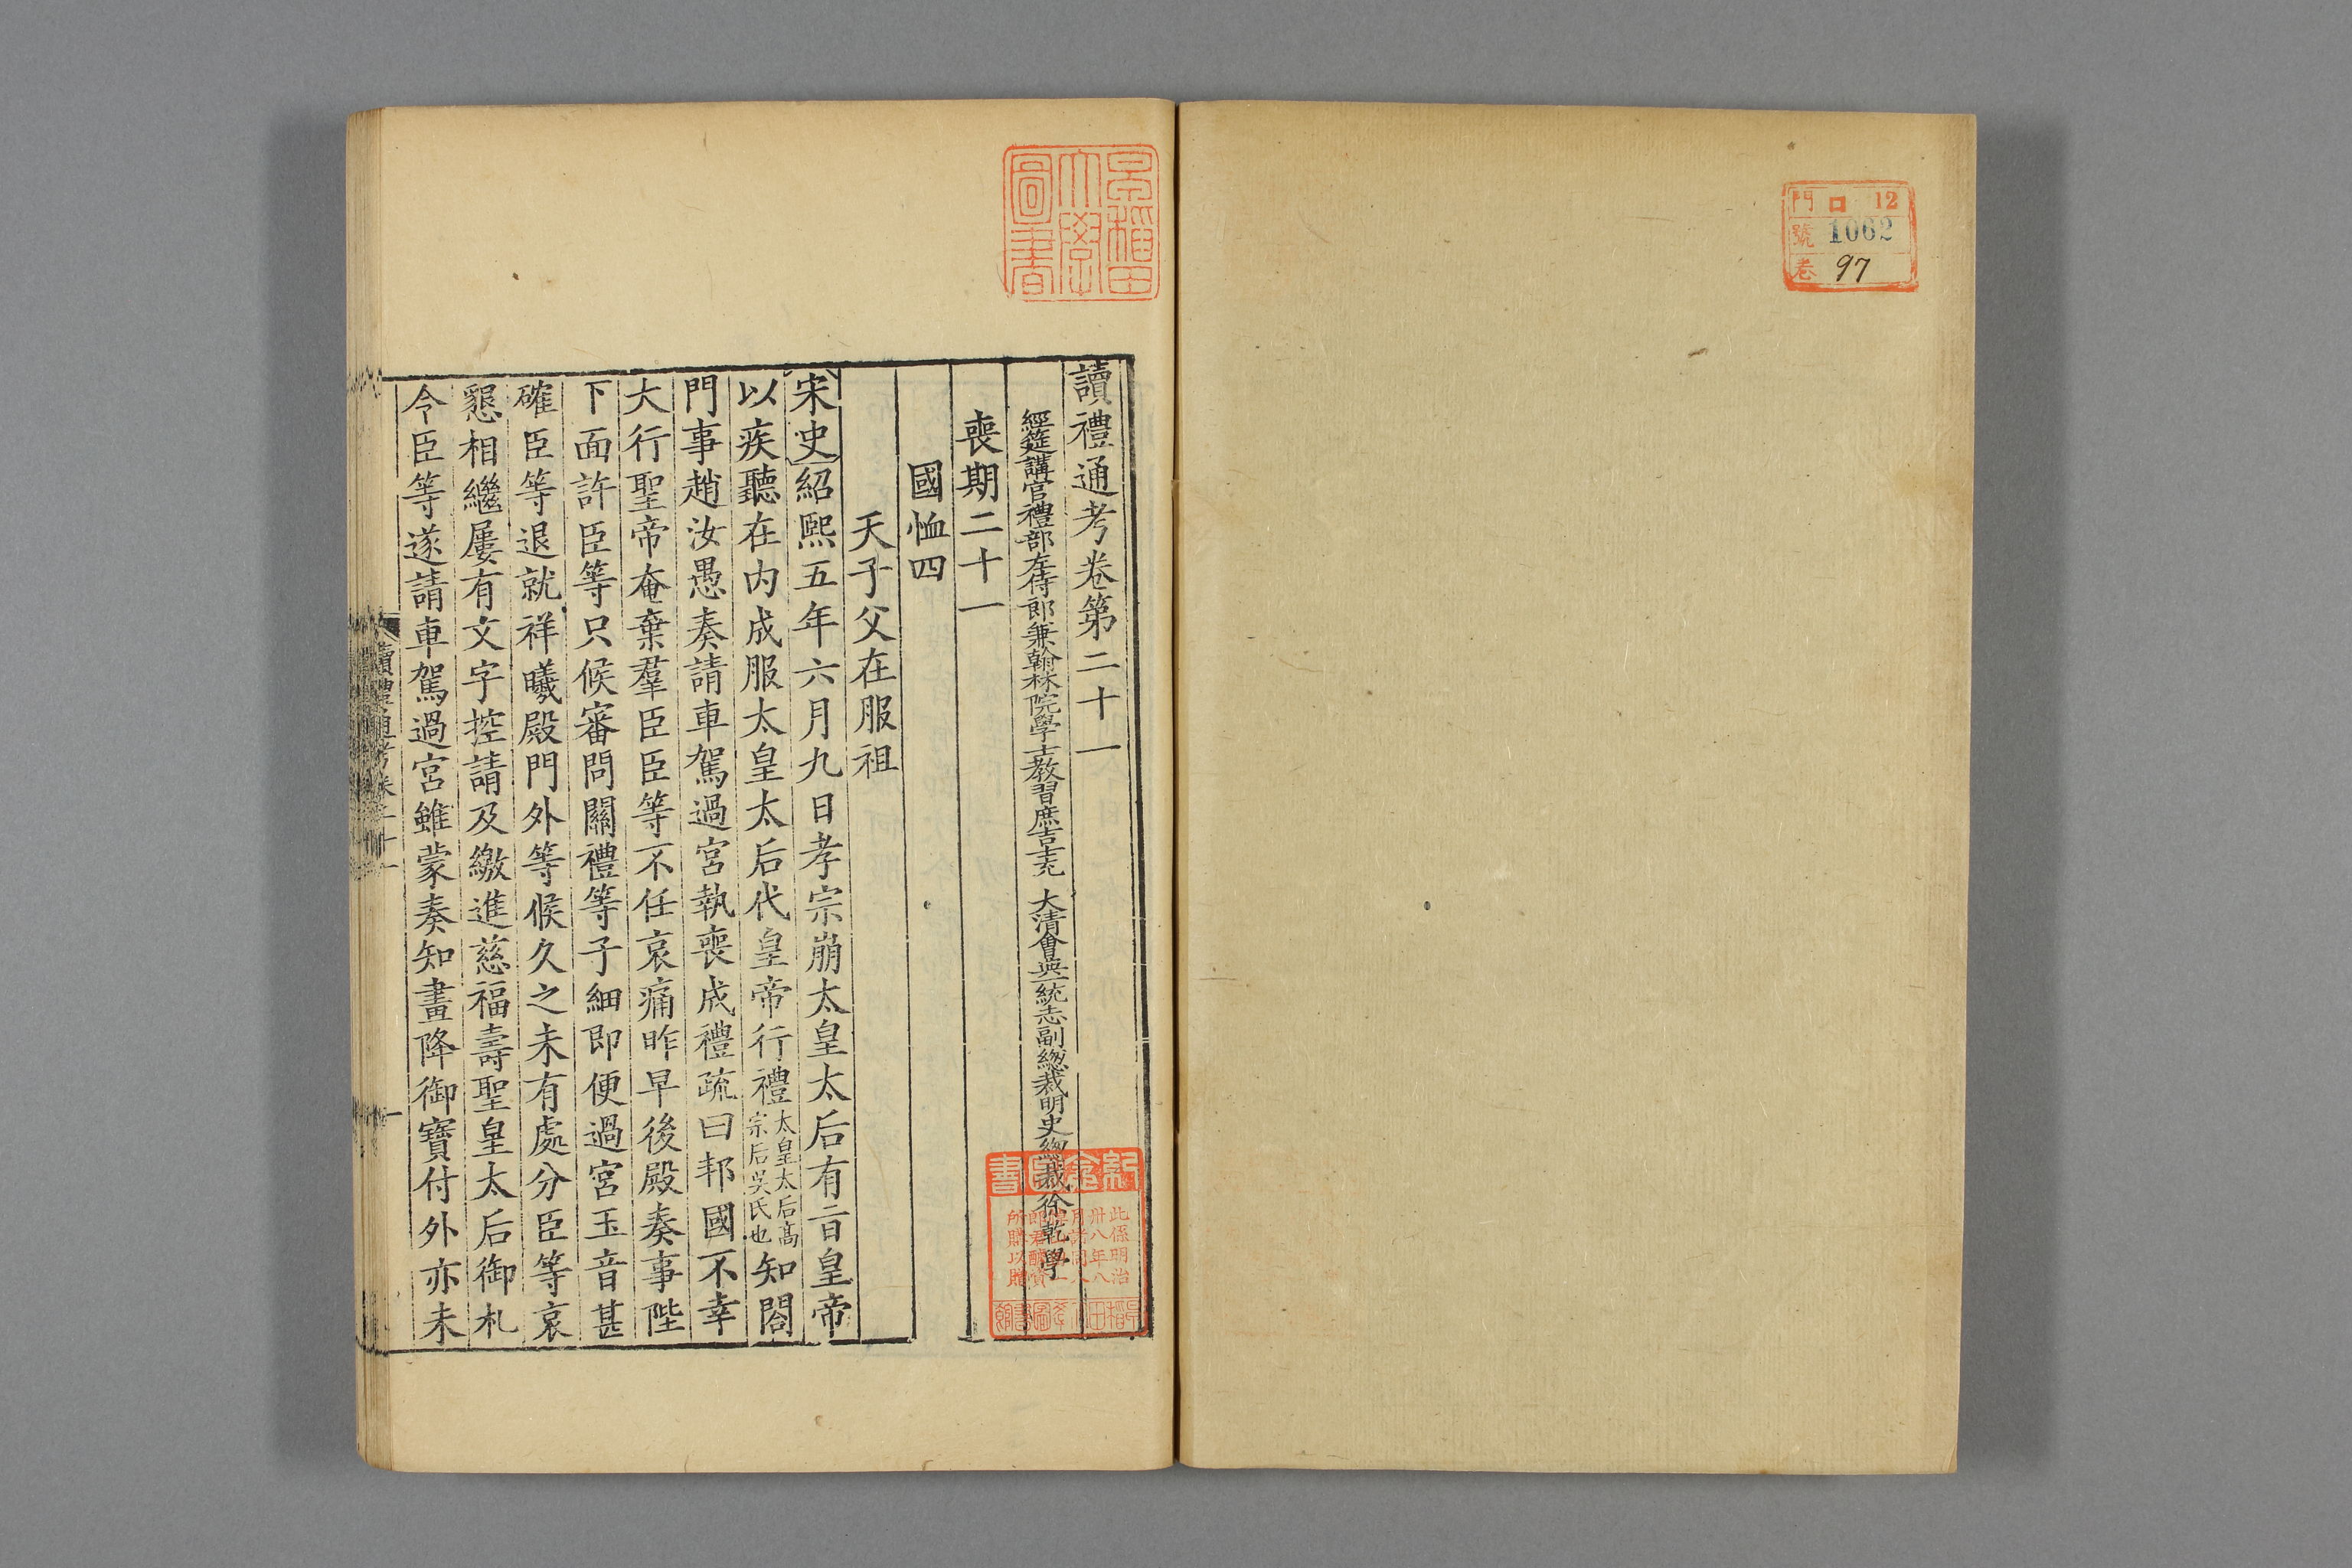 門 口 12
號 1062
卷 97
早稻田大學圖書
讀禮通考卷第二十一
經筵講官禮部左侍郎兼翰林院學士教習庶吉士充 大清會典一統志副總裁明史總裁徐乾學
喪期二十一
國恤四
天子父在服祖
宋史紹熙五年六月九日孝宗崩太皇太后有旨皇帝
以疾聽在内成服太皇太后代皇帝行禮太皇太后髙宗后吳氏也知閤
門事趙汝愚奏請車駕過宮執喪成禮疏曰邦國不幸
大行聖帝奄棄羣臣臣等不任哀痛昨早後殿奏事陛
下面許臣等只候審問關禮等子細即便過宮玉音甚
確臣等退就祥曦殿門外等候久之未有處分臣等哀
懇相繼屢有文字控請及繳進慈福壽聖皇太后御札
令臣等遂請車駕過宮雖蒙奏知畫降御寶付外亦未
讀禮通考卷二十一
一
此係明治
卅八年八
所購以贈